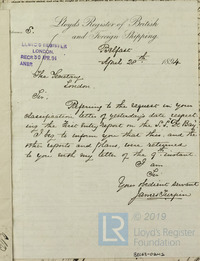 Lloyd's Register of British
and Foreign Shipping.
Belfast
April 20th 1894
LLOYD'S REGISTER
LONDON.
The Secretary
London
Sir,
Referring to the request in your
classification letter of yesterday's date respect
ing the first entry report on the
I beg to inform you that this, and the
other reports and plans, were returned
to you with my letter of the instant
I am
Sir
Your obedient servant
James Turpin
© 2019
Lloyd's Register
Foundation